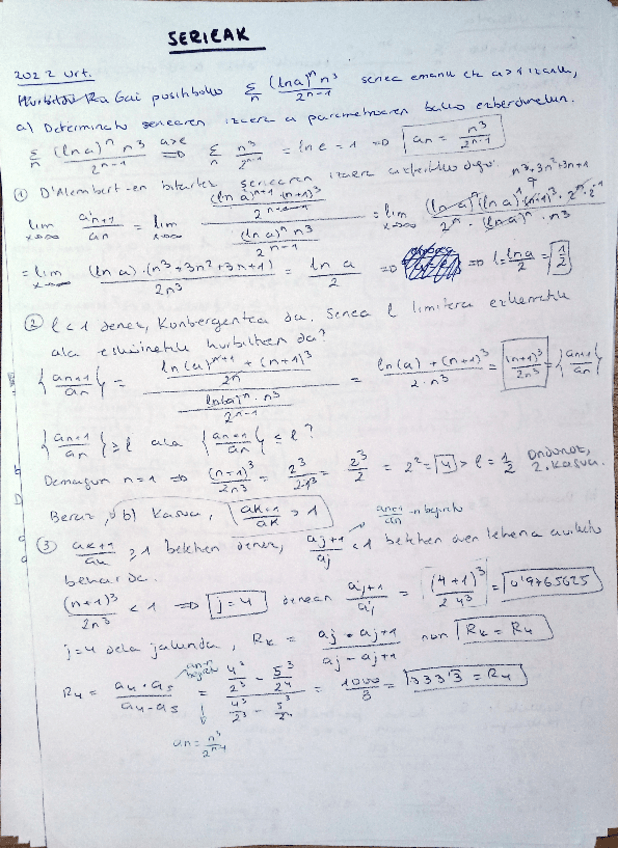 SERIEAK
2022 urt.
Gai positiboko Σ_n (ln a)^n n^3 / 2^(n-1) seriea emanik eta a>1 izanik,
a) Determinatu seriearen izaera a parametroaren balio ezberdinetan.
Σ_n (ln a)^n n^3 / 2^(n-1) a=e ⇒ Σ_n n^3 / 2^(n-1) = ln e = 1 ⇒ an = n^3 / 2^(n-1)
① D'Alembert-en bitartez seriearen izaera aztertuko dugu. n^3+3n^2+3n+1
lim x→∞ an+1 / an = lim x→∞ ((ln a)^(n+1) · (n+1)^3 / 2^(n+1-1)) / ((ln a)^n n^3 / 2^(n-1)) = lim x→∞ (ln a)^n (ln a)^1 (n+1)^3 · 2^n · 2^-1 / 2^n · (ln a)^n · n^3
= lim x→∞ (ln a) · (n^3+3n^2+3n+1) / 2n^3 = ln a / 2 ⇒ ⇒ l = ln a / 2 = 1/2
② l < 1 denez, Konbergentea da. Seriea l limitera ezkerretik
ala eskuinetik hurbiltzen da?
{an+1 / an} = (ln(a)^(n+1) + (n+1)^3 / 2^n) / (ln(a)^n · n^3 / 2^(n-1)) = ln(a) + (n+1)^3 / 2 · n^3 = (n+1)^3 / 2n^3 = {an+1 / an}
{an+1 / an} ≥ l ala {an+1 / an} < l ?
Demagun n=1 ⇒ (n+1)^3 / 2n^3 = 2^3 / 2·1^3 = 2^3 / 2 = 2^2 = 4 > l = 1/2 Ondorioz, 2. kasua.
Beraz, b) Kasua, ak+1 / ak > 1
an+1 / an -n begiratu
③ ak+1 / ak ≥ 1 betetzen denez, aj+1 / aj < 1 betetzen duen lehena aurkitu
behar da.
(n+1)^3 / 2n^3 < 1 ⇒ j=4 denean aj+1 / aj = (4+1)^3 / 2·4^3 = 0'9765625
j=4 dela jakinda, Rk = aj · aj+1 / aj - aj+1 non Rk = R4
R4 = a4 · a5 / a4 - a5 = (4^3/2^3 · 5^3/2^4) / (4^3/2^3 - 5^3/2^4) = 1000 / 3 = 333'3 = R4
an = n^3 / 2^(n-1)